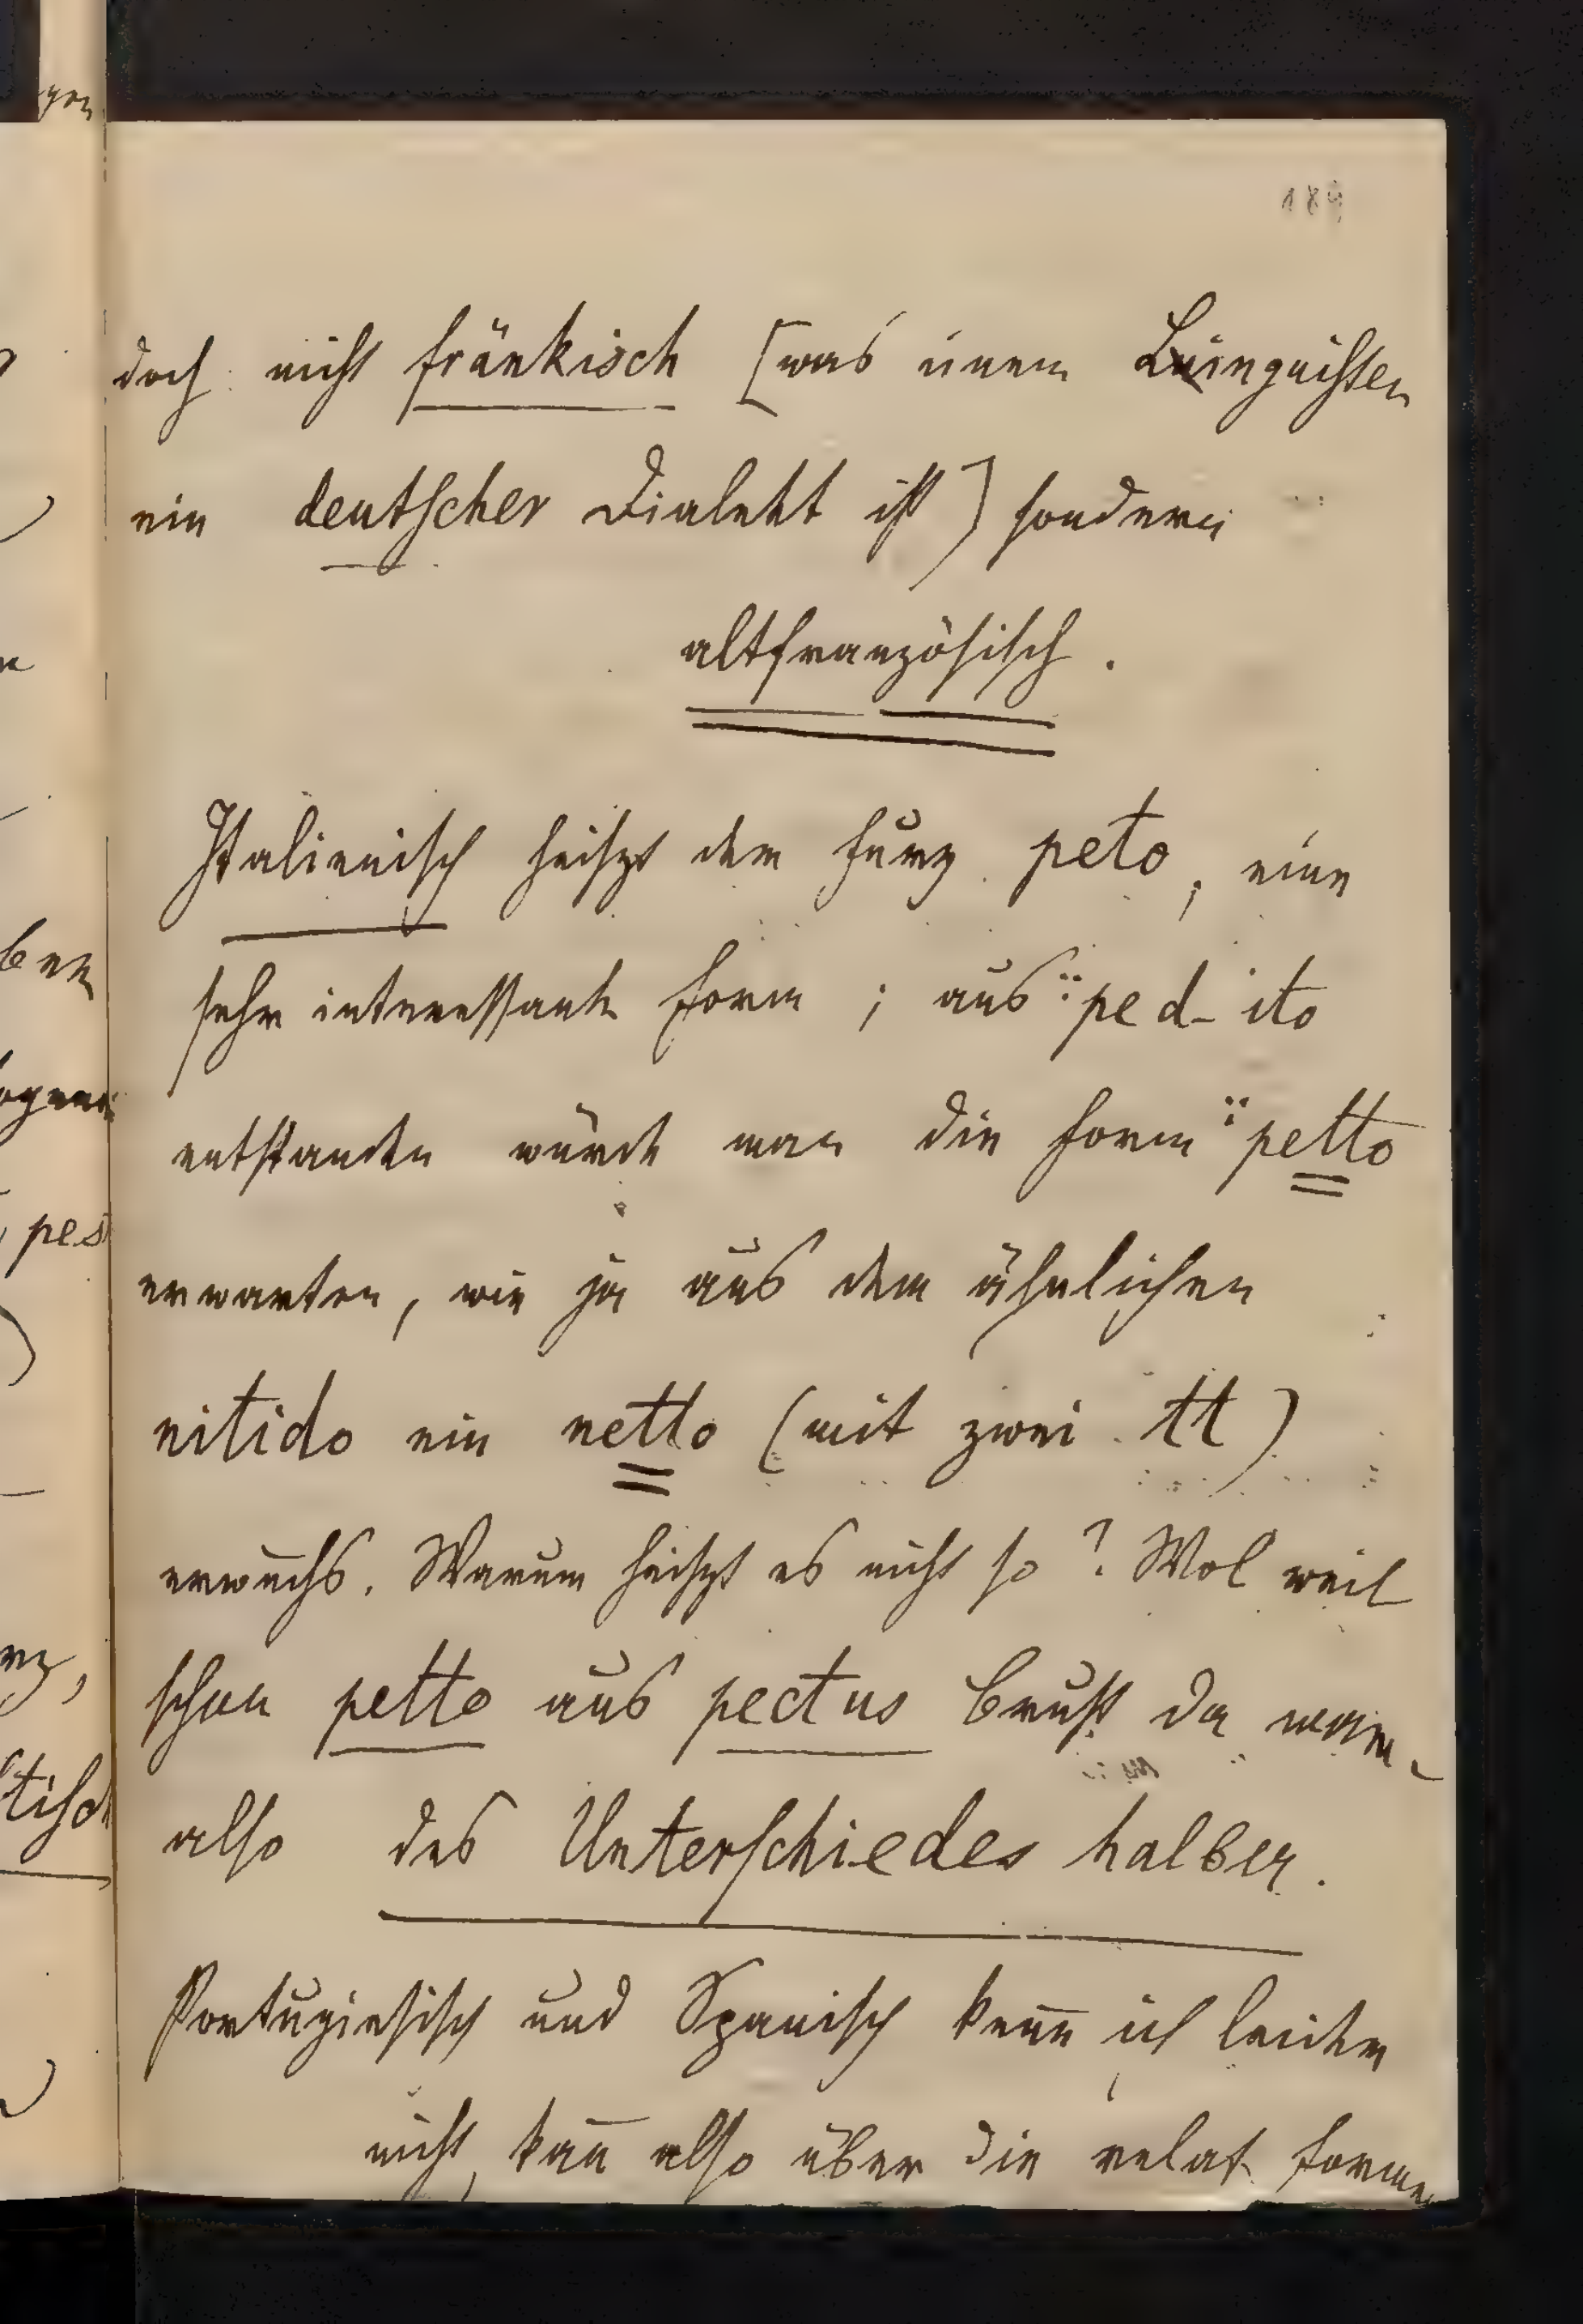 doch nicht fränkisch [was einem Linguisten
ein deutscher Dialekt ist] sondern
altfranzösisch.
Italienisch heiszt der furz peto, eine
sehr interessante form; aus ped-ito
entstanden würde man die form petto
erwarten, wie ja aus dem ähnlichen
nitido ein netto (mit zwei tt)
erwuchs. Warum heiszt es nicht so? Wol weil
schon petto aus pectus brust da war
also des Unterschiedes halber.
Portugiesisch und Spanisch kenn̅ ich leider
nicht, kan̅ also über die relat formen